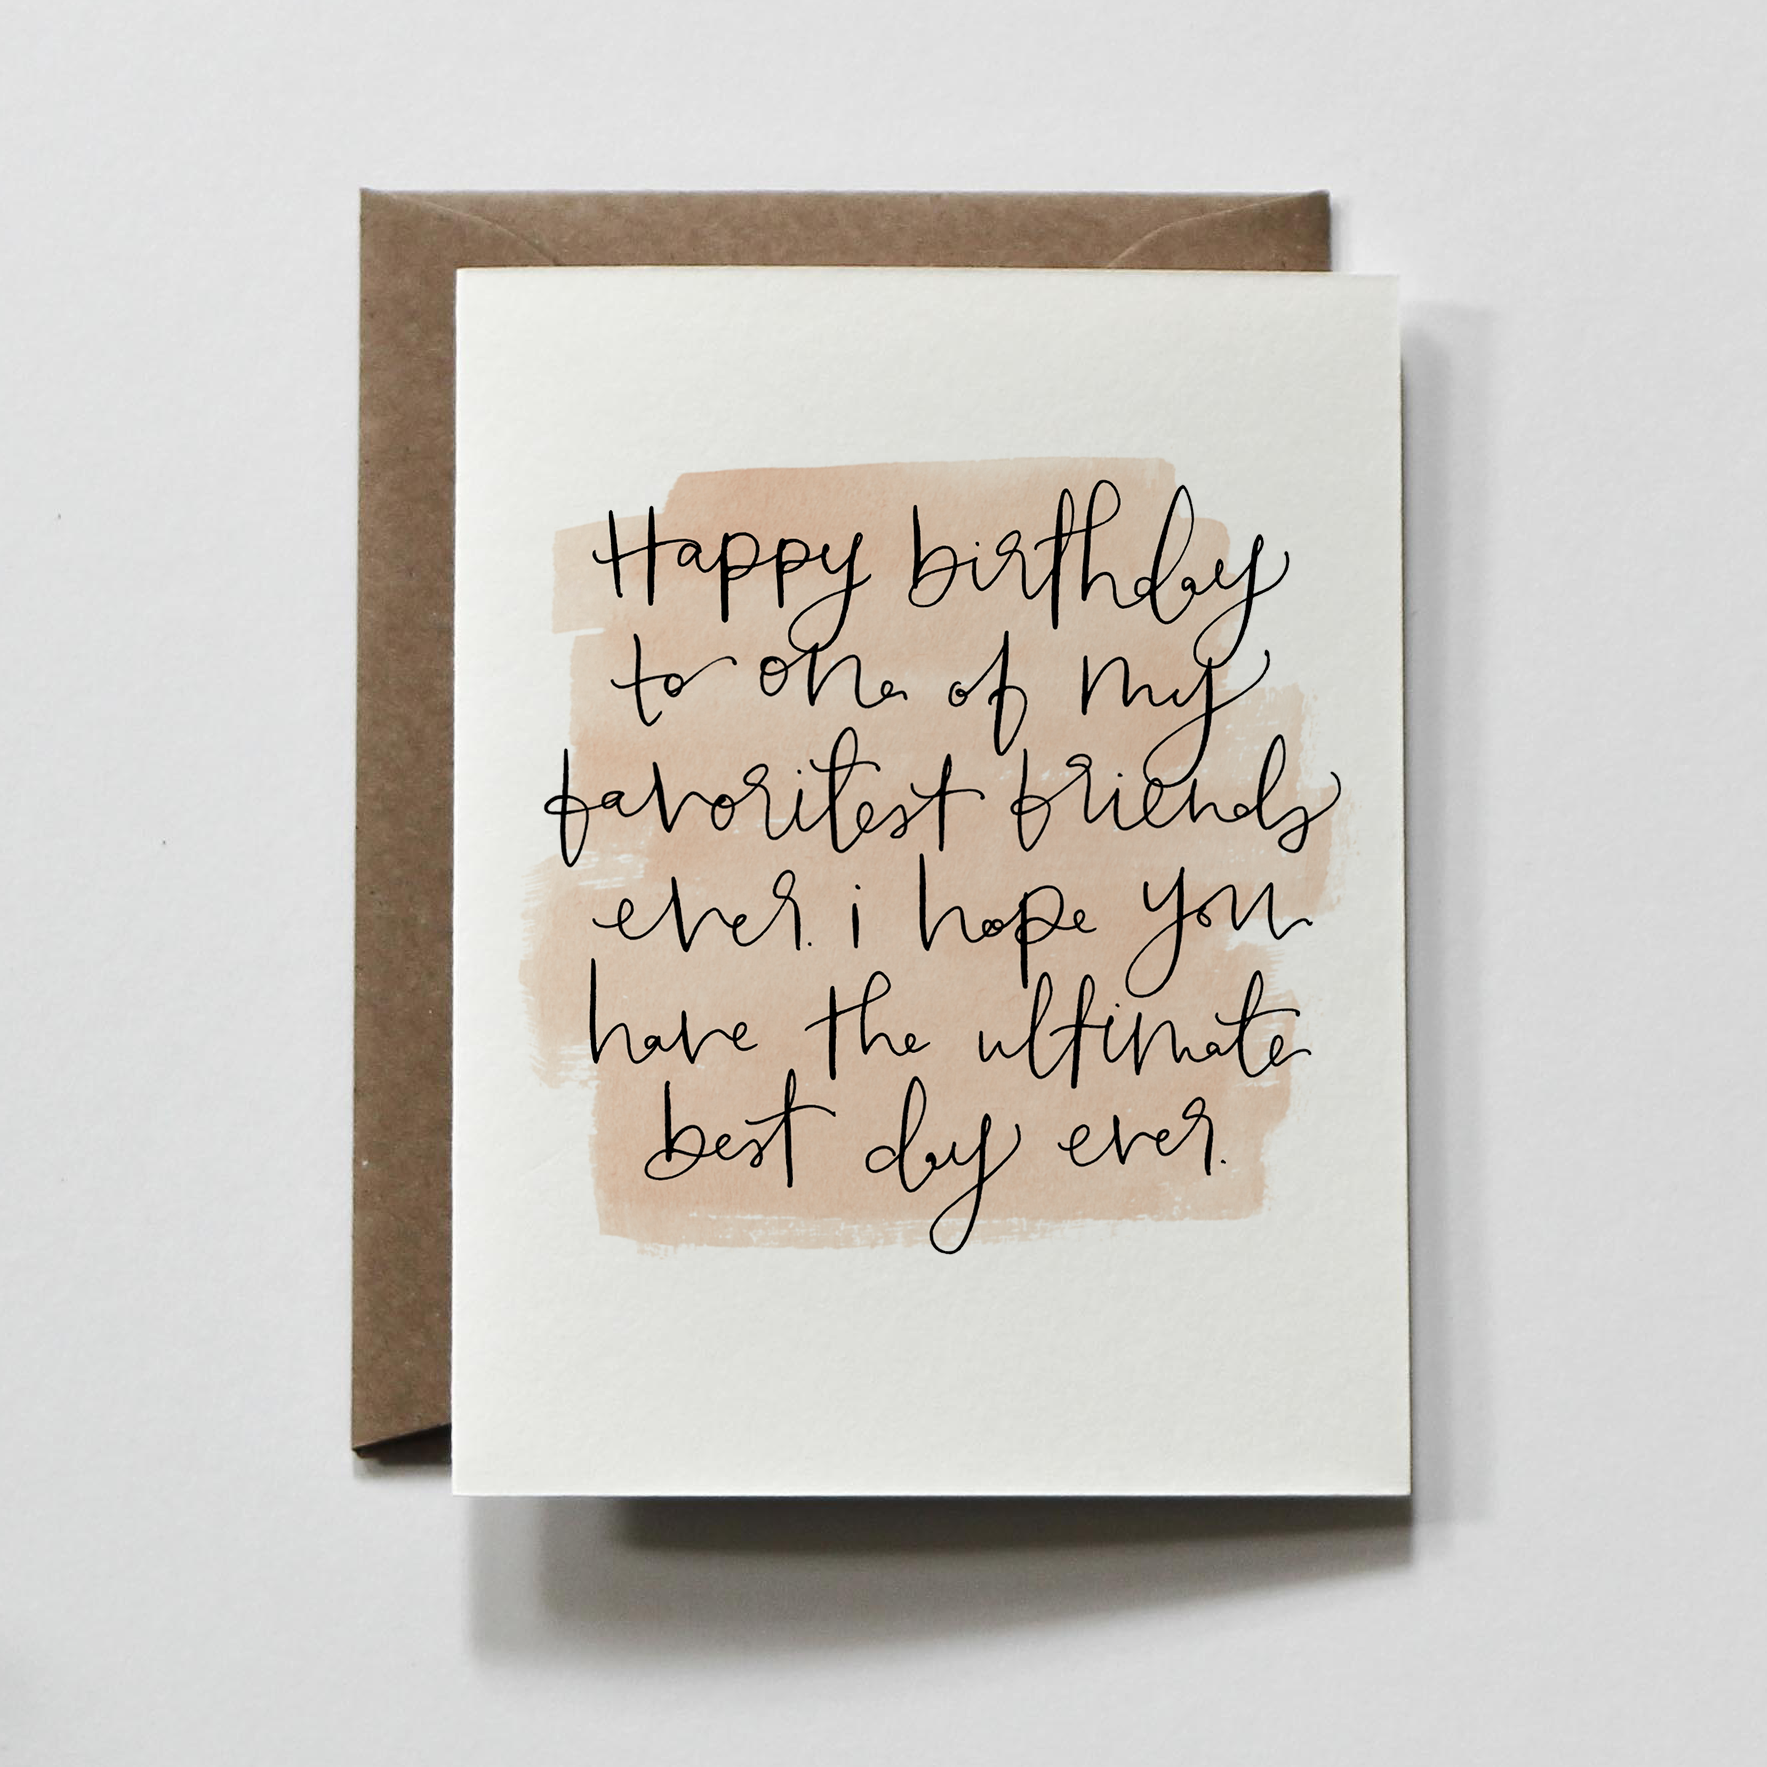 Happy birthday
to one of my
favoritest friends
ever. i hope you
have the ultimate
best day ever.